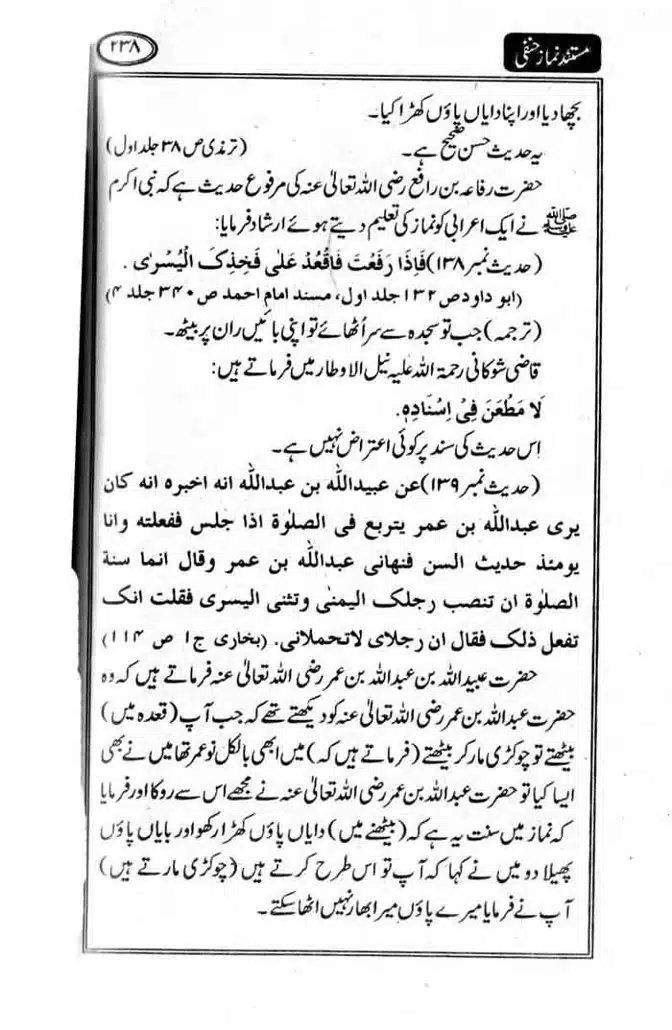 مستند نماز حنفی
۲۳۸
بچھا دیا اور اپنا دایاں پاؤں کھڑا کیا۔
یہ حدیث حسن صحیح ہے۔ (ترمذی ص ۳۸ جلد اول)
حضرت رفاعہ بن رافع رضی اللہ تعالیٰ عنہ کی مرفوع حدیث ہے کہ نبی اکرم
ﷺ نے ایک اعرابی کو نماز کی تعلیم دیتے ہوئے ارشاد فرمایا:
(حدیث نمبر ۱۳۸) فَاِذَا رَفَعْتَ فَاقْعُدْ عَلٰی فَخِذِکَ الْیُسْرٰی .
(ابو داود ص ۱۳۲ جلد اول، مسند امام احمد ص ۳۴۰ جلد ۴)
(ترجمہ) جب تو سجدہ سے سر اُٹھائے تو اپنی بائیں ران پر بیٹھ۔
قاضی شوکانی رحمۃ اللہ علیہ نیل الاوطار میں فرماتے ہیں:
لَا مَطْعَنَ فِیْ اِسْنَادِہٖ.
اِس حدیث کی سند پر کوئی اعتراض نہیں ہے۔
(حدیث نمبر ۱۳۹) عن عبیداللّٰہ بن عبداللّٰہ انہ اخبرہ انہ کان
یری عبداللّٰہ بن عمر یتربع فی الصلوٰة اذا جلس ففعلته وانا
یومئذ حدیث السن فنھانی عبداللّٰہ بن عمر وقال انما سنة
الصلوٰة ان تنصب رجلک الیمنٰی وتثنی الیسری فقلت انک
تفعل ذلک فقال ان رجلای لاتحملانی. (بخاری ج۱ ص ۱۱۴)
حضرت عبید اللہ بن عبداللہ بن عمر رضی اللہ تعالیٰ عنہ فرماتے ہیں کہ وہ
حضرت عبداللہ بن عمر رضی اللہ تعالیٰ عنہ کو دیکھتے تھے کہ جب آپ (قعدہ میں)
بیٹھتے تو چوکڑی مار کر بیٹھتے (فرماتے ہیں کہ) میں ابھی بالکل نو عمر تھا میں نے بھی
ایسا کیا تو حضرت عبداللہ بن عمر رضی اللہ تعالیٰ عنہ نے مجھے اس سے روکا اور فرمایا
کہ نماز میں سنت یہ ہے کہ (بیٹھنے میں) دایاں پاؤں کھڑا رکھو اور بایاں پاؤں
پھیلا دو میں نے کہا کہ آپ تو اس طرح کرتے ہیں (چوکڑی مارتے ہیں)
آپ نے فرمایا میرے پاؤں میرا بھار نہیں اٹھا سکتے۔